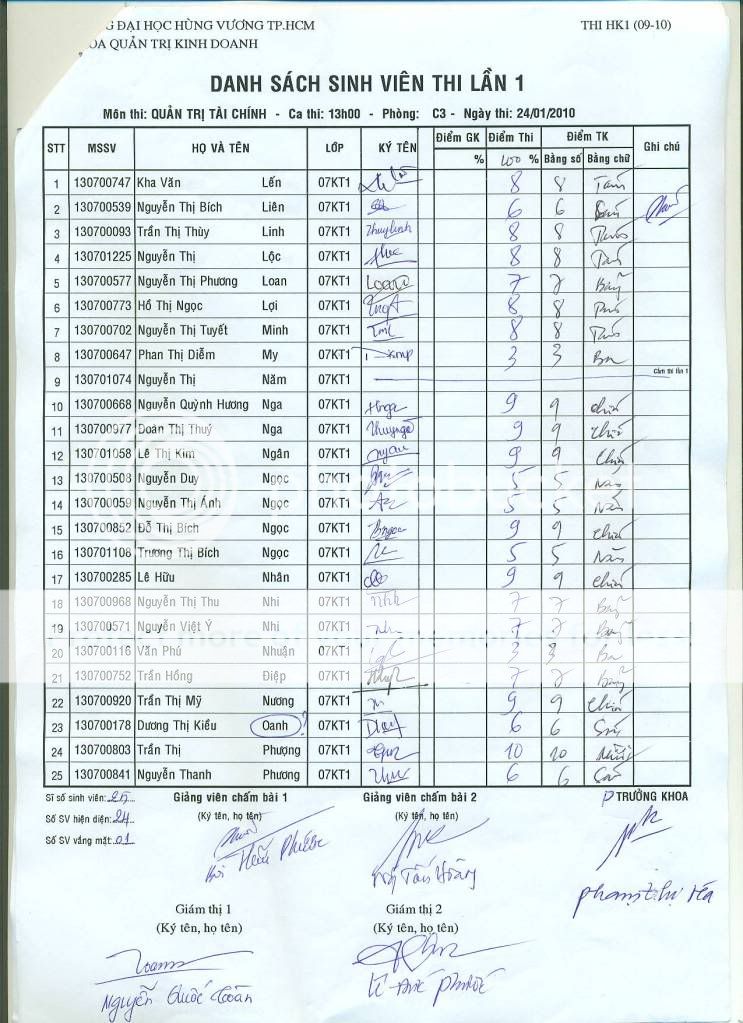 G ĐẠI HỌC HÙNG VƯƠNG TP.HCM THI HK1 (09-10)
OA QUẢN TRỊ KINH DOANH
DANH SÁCH SINH VIÊN THI LẦN 1
Môn thi: QUẢN TRỊ TÀI CHÍNH - Ca thi: 13h00 - Phòng: C3 - Ngày thi: 24/01/2010
STT MSSV HỌ VÀ TÊN LỚP KÝ TÊN Điểm GK Điểm Thi Điểm TK Ghi chú
% 100 % Bằng số Bằng chữ
1 130700747 Kha Văn Lến 07KT1 8 8 Tám
2 130700539 Nguyễn Thị Bích Liên 07KT1 6 6 Sáu
3 130700093 Trần Thị Thùy Linh 07KT1 Thuylinh 8 8 Tám
4 130701225 Nguyễn Thị Lộc 07KT1 8 8 Tám
5 130700577 Nguyễn Thị Phương Loan 07KT1 7 7 Bảy
6 130700773 Hồ Thị Ngọc Lợi 07KT1 8 8 Tám
7 130700702 Nguyễn Thị Tuyết Minh 07KT1 8 8 Tám
8 130700647 Phan Thị Diễm My 07KT1 3 3 Ba
9 130701074 Nguyễn Thị Năm 07KT1 Cấm thi lần 1
10 130700668 Nguyễn Quỳnh Hương Nga 07KT1 9 9 Chín
11 130700977 Đoàn Thị Thuý Nga 07KT1 9 9 Chín
12 130701058 Lê Thị Kim Ngân 07KT1 9 9 Chín
13 130700508 Nguyễn Duy Ngọc 07KT1 5 5 Năm
14 130700059 Nguyễn Thị Ánh Ngọc 07KT1 5 5 Năm
15 130700852 Đỗ Thị Bích Ngọc 07KT1 9 9 Chín
16 130701108 Trương Thị Bích Ngọc 07KT1 5 5 Năm
17 130700285 Lê Hữu Nhân 07KT1 9 9 Chín
18 130700968 Nguyễn Thị Thu Nhi 07KT1 7 7 Bảy
19 130700571 Nguyễn Việt Ý Nhi 07KT1 7 7 Bảy
20 130700116 Văn Phú Nhuận 07KT1 3 3 Ba
21 130700752 Trần Hồng Điệp 07KT1 7 7 Bảy
22 130700920 Trần Thị Mỹ Nương 07KT1 9 9 Chín
23 130700178 Dương Thị Kiều Oanh ? 07KT1 6 6 Sáu
24 130700803 Trần Thị Phượng 07KT1 10 10 Mười
25 130700841 Nguyễn Thanh Phương 07KT1 6 6 Sáu
Sĩ số sinh viên: 25 Giảng viên chấm bài 1 Giảng viên chấm bài 2 P TRƯỞNG KHOA
Số SV hiện diện: 24 (Ký tên, họ tên) (Ký tên, họ tên)
Số SV vắng mặt: 01
Bùi Hữu Phước Ng Tấn Hoàng Phạm Thị Hà
Giám thị 1 Giám thị 2
(Ký tên, họ tên) (Ký tên, họ tên)
Nguyễn Quốc Phước